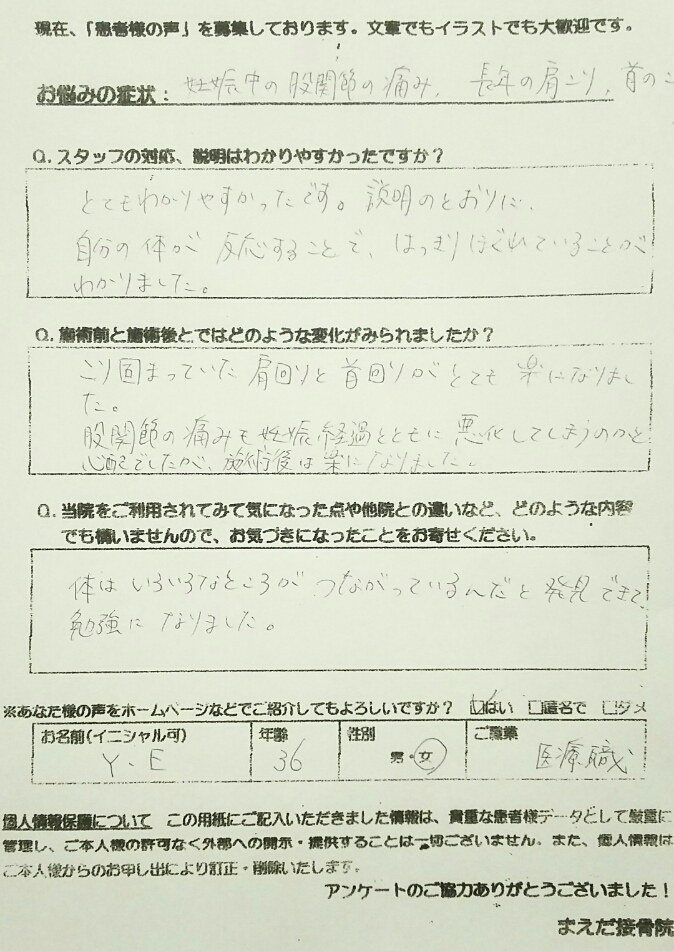 現在、「患者様の声」を募集しております。文章でもイラストでも大歓迎です。
お悩みの症状： 妊娠中の股関節の痛み、長年の肩こり、首のこ
Q. スタッフの対応、説明はわかりやすかったですか？
とてもわかりやすかったです。説明のとおりに、
自分の体が反応することで、はっきりほぐれていることが
わかりました。
Q. 施術前と施術後とではどのような変化がみられましたか？
こり固まっていた肩回りと首回りがとても楽になりまし
た。
股関節の痛みも妊娠経過とともに悪化してしまうのかと
心配でしたが、施術後は楽になりました。
Q. 当院をご利用されてみて気になった点や他院との違いなど、どのような内容
でも構いませんので、お気づきになったことをお寄せください。
体はいろいろなところがつながっているんだと発見できて、
勉強になりました。
※あなた様の声をホームページなどでご紹介してもよろしいですか？ ☑はい □匿名で □ダメ
お名前(イニシャル可) 年齢 性別 ご職業
Y.E 36 男・女 医療職
個人情報保護について この用紙にご記入いただきました情報は、貴重な患者様データとして厳重に
管理し、ご本人様の許可なく外部への開示・提供することは一切ございません。また、個人情報は
ご本人様からのお申し出により訂正・削除いたします。
アンケートのご協力ありがとうございました！
まえだ接骨院